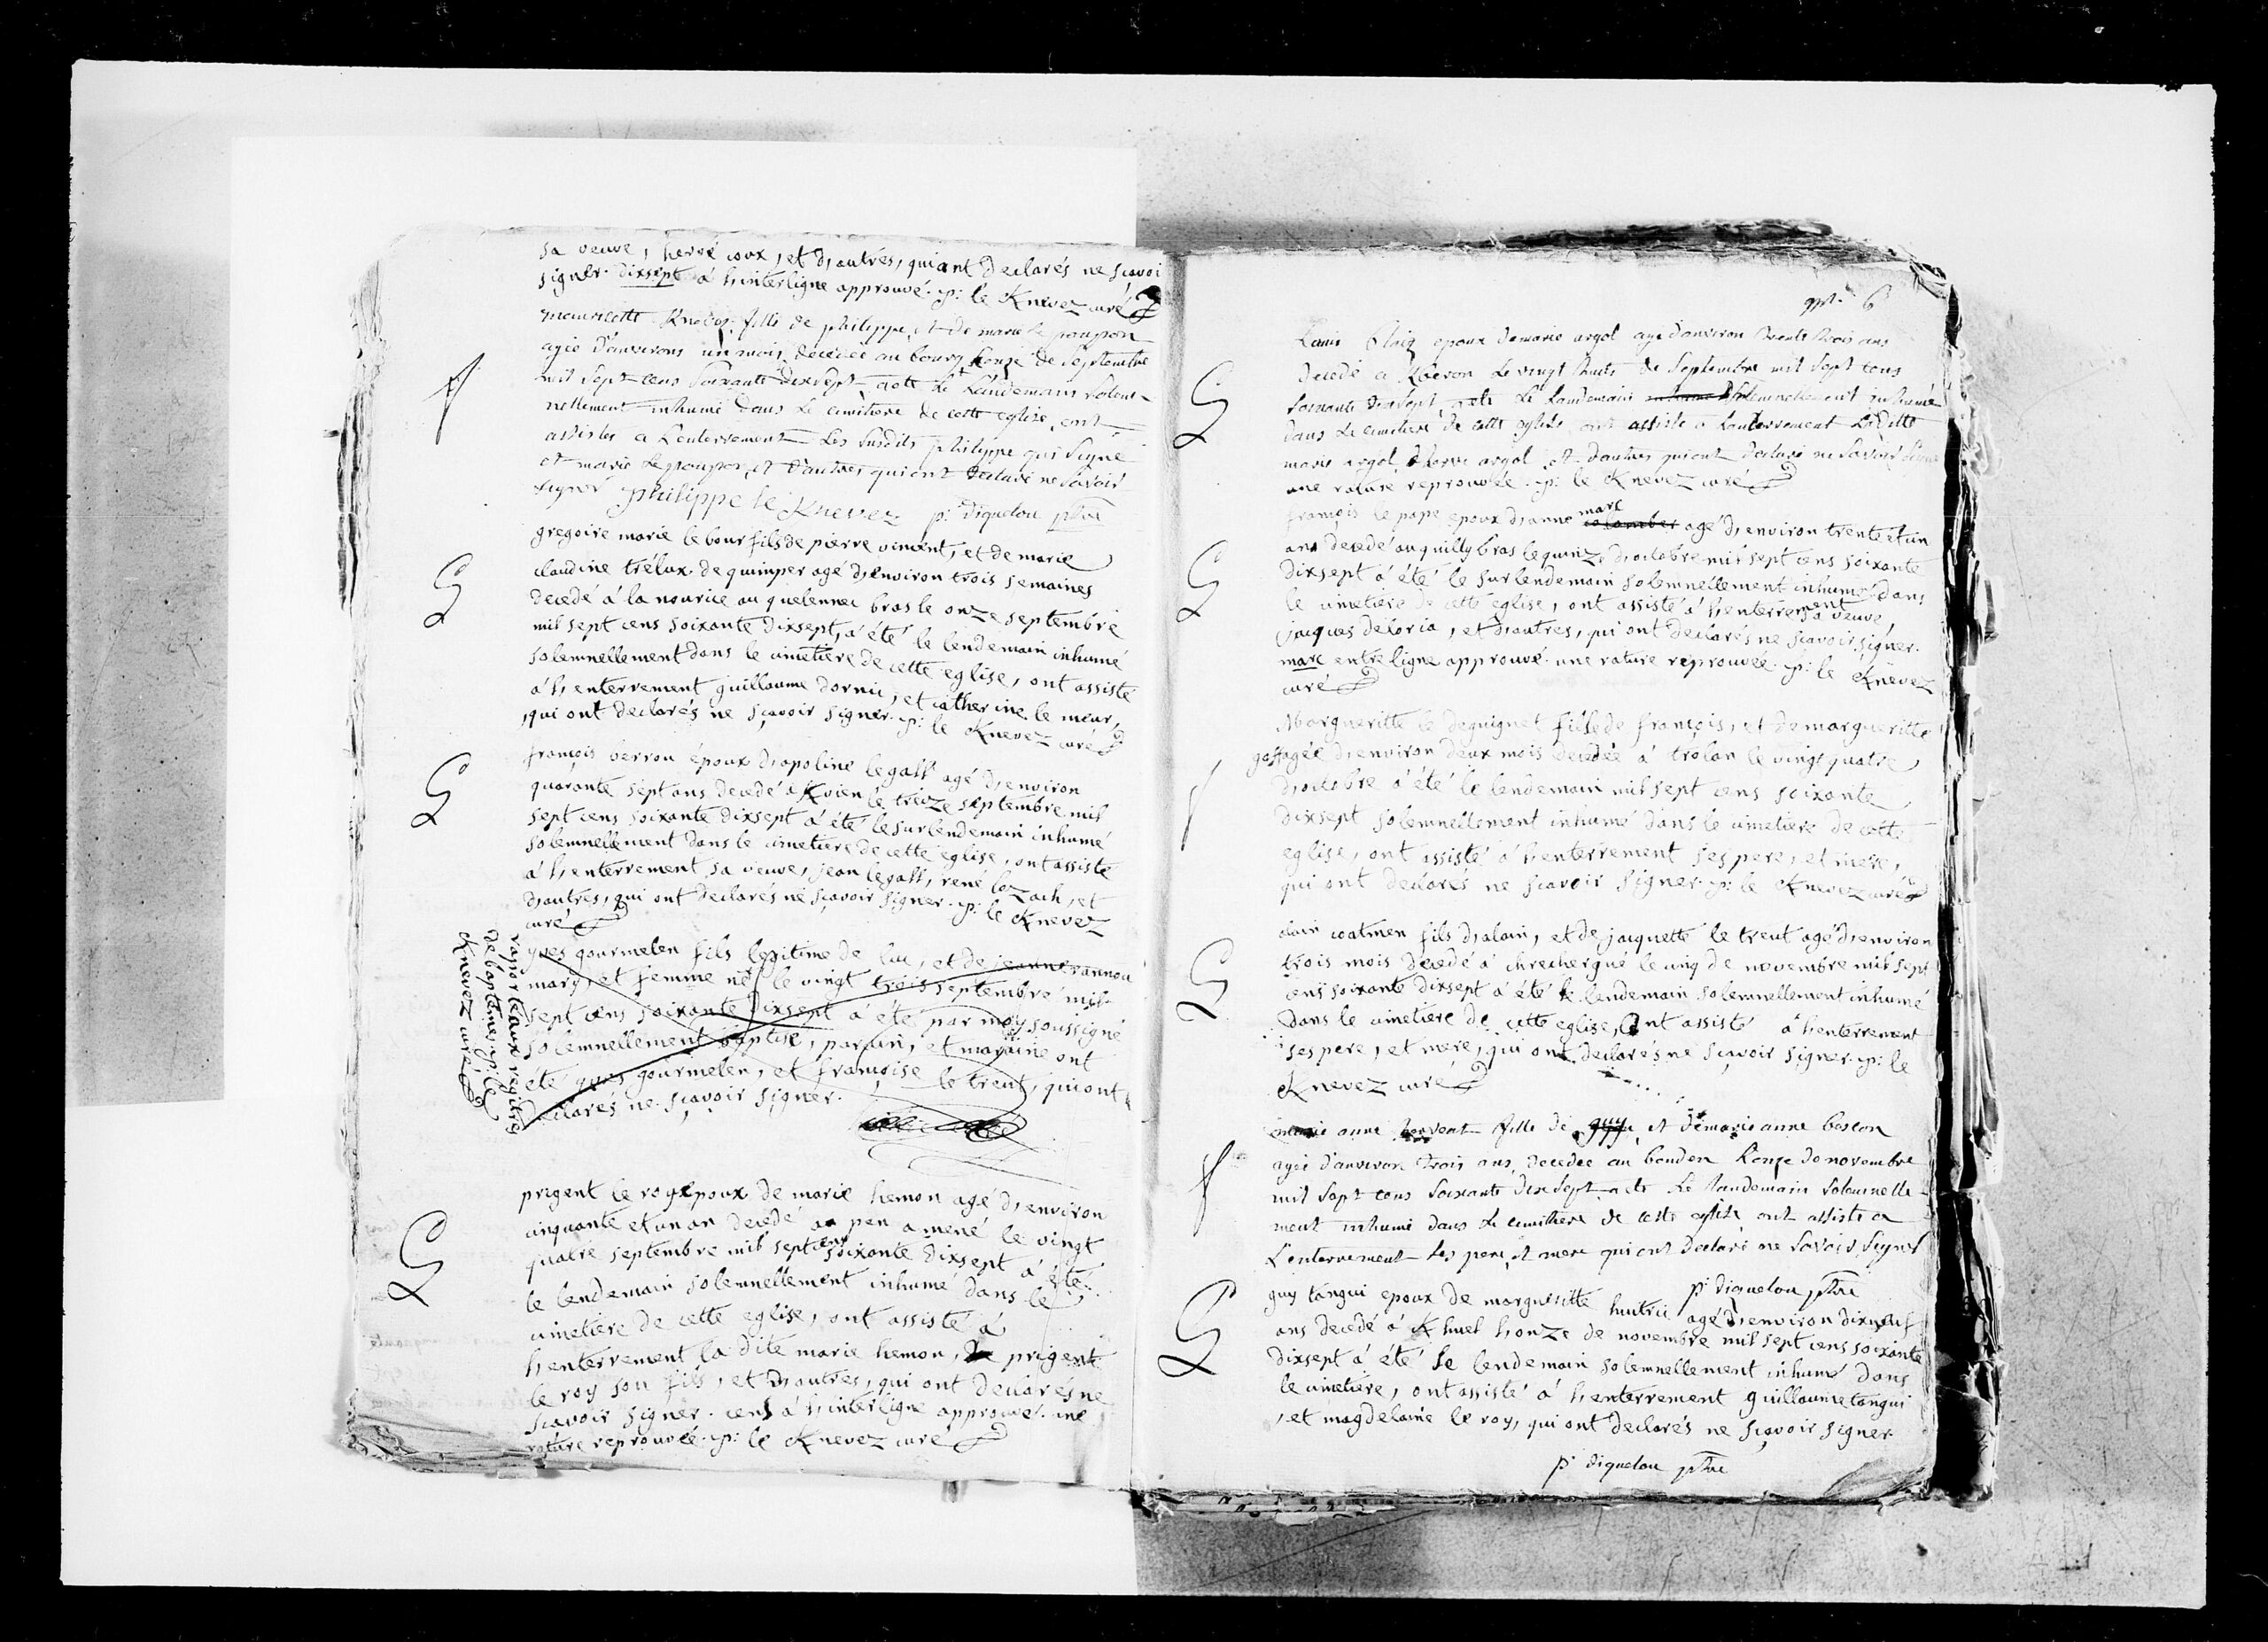 sa veuve, hervé coux, et d'autrés, qui ont declarés ne sçavoi
signer. dixsept à l'interligne approuvé. p: le Knevez curé
mauricette Knevez fille de philippe, et de marie le poupon
agée d'anvirons un mois, decedée au bourg l'onze de Septembre
mil Sept cens Soixante dixsept a ete Le Landemain Solem-
nellement inhumé dans Le cimitiere de cette eglise, ont
assistes a L'enterrement Les Susdits philippe qui Signe
et marie Le poupon, et d'autres qui ont declaré ne Savoir
signer philippe le Knevez p: diquelou ptre
gregoire marie le bour fils de pierre vincent, et de marie
claudine trélux de quimper agé d'environ trois semaines
decedé à la nourice au quelennec bras le onze septembre
mil sept cens soixante dixsept, à été le lendemain inhumé
solemnellement dans le cimetiére de cette eglise, ont assisté
à l'enterrement guillaume dornic, et catherine le meur,
qui ont declarés ne sçavoir signer. p: le Knevez curé
françois berrou époux d'apoline le gall agé d'environ
quarante sept ans decedé à Kvien le treize septembre mil
sept cens soixante dixsept à été le surlendemain inhumé
solemnellement dans le cimetiere de cette eglise, ont assisté
à l'enterrement sa veuve, jean le gall, rené lozach, et
d'autres, qui ont declarés ne sçavoir signer. p: le Knevez
curé
yves gourmelen fils legitime de luc, et de jeanne vannou
mary, et femme né le vingt trois septembre mil
sept cens soixante dixsept à été par moy soussigné
solemnellement baptisé, parain, et maraine ont
été yves gourmelen, et françoise le treut, qui ont
declarés ne sçavoir signer.
raporté aux regitres
de baptêmes. p: le
Knevez curé
prigent le roy époux de marie hemon agé d'environ
cinquante et un an decedé au pen a mené le vingt
quatre septembre mil sept cens soixante dixsept à été
le lendemain solemnellement inhumé dans le
cimetiere de cette eglise, ont assisté à
l'enterrement la dite marie hemon, prigent
le roy son fils, et d'autres, qui ont declarés ne
sçavoir signer. cens à l'interligne approuvé. une
rature reprouvée. p: le Knevez curé
6
Louis epoux de marie argol agé d'anviron trente trois ans
decedé a Le vingt huit de Septembre mil Sept cens
Soixante dixsept, a ete Le Landemain Solemnellement inhumé
dans Le cimitiere de cette eglise, ont assisté a L'anterrement Laditte
marie argol, herve argol, et d'autres qui ont declaré ne Savoir
une rature reprouvée. p: le Knevez curé
françois le pape epoux d'anne marc colomber agé d'environ trente et un
ans decedé au quilly bras le quinze d'octobre mil sept cens soixante
dixsept à été le surlendemain solemnellement inhumé dans
le cimetiére de cette eglise, ont assisté à l'enterrement sa veuve,
jacques deloria, et d'autres, qui ont declarés ne sçavoir signer.
marc entreligne approuvé. une rature reprouvée. p: le Knevez
curé
Margueritte le deguignet fille de françois, et de margueritte
goff agée d'environ deux mois decedée à trolan le vingt quatre
d'octobre à été le lendemain mil sept cens soixante
dixsept solemnellement inhumé dans le cimetiere de cette
eglise, ont assisté à l'enterrement ses pere, et mere,
qui ont declarés ne sçavoir signer. p: le Knevez curé
alain coatmen fils d'alain, et de jacquette le treut agé d'environ
trois mois decedé à chrecherqué le cinq de novembre mil sept
cens soixante dixsept à été le lendemain solemnellement inhumé
dans le cimetiere de cette eglise, ont assisté à l'enterrement
ses pere, et mere, qui ont declarés ne sçavoir signer. p: le
Knevez curé
marie anne fille de guy, et de marie anne boscon
agée d'anviron trois ans, decedée au bouden L'onze de novembre
mil Sept cens Soixante dixsept a ete Le Landemain Solemnelle-
ment inhumé dans Le cimitiere de cette eglise, ont assisté a
L'enterrement Les pere, et mere qui ont declaré ne Savoir Signer
p: diquelou ptre
guy tangui epoux de margueritte huitric agé d'environ dixneuf
ans decedé à Khuel l'onze de novembre mil sept cens soixante
dixsept à été le lendemain solemnellement inhumé dans
le cimetiére, ont assisté à l'enterrement guillaume tangui
, et magdelaine le roy, qui ont declarés ne sçavoir signer.
p: diquelou ptre